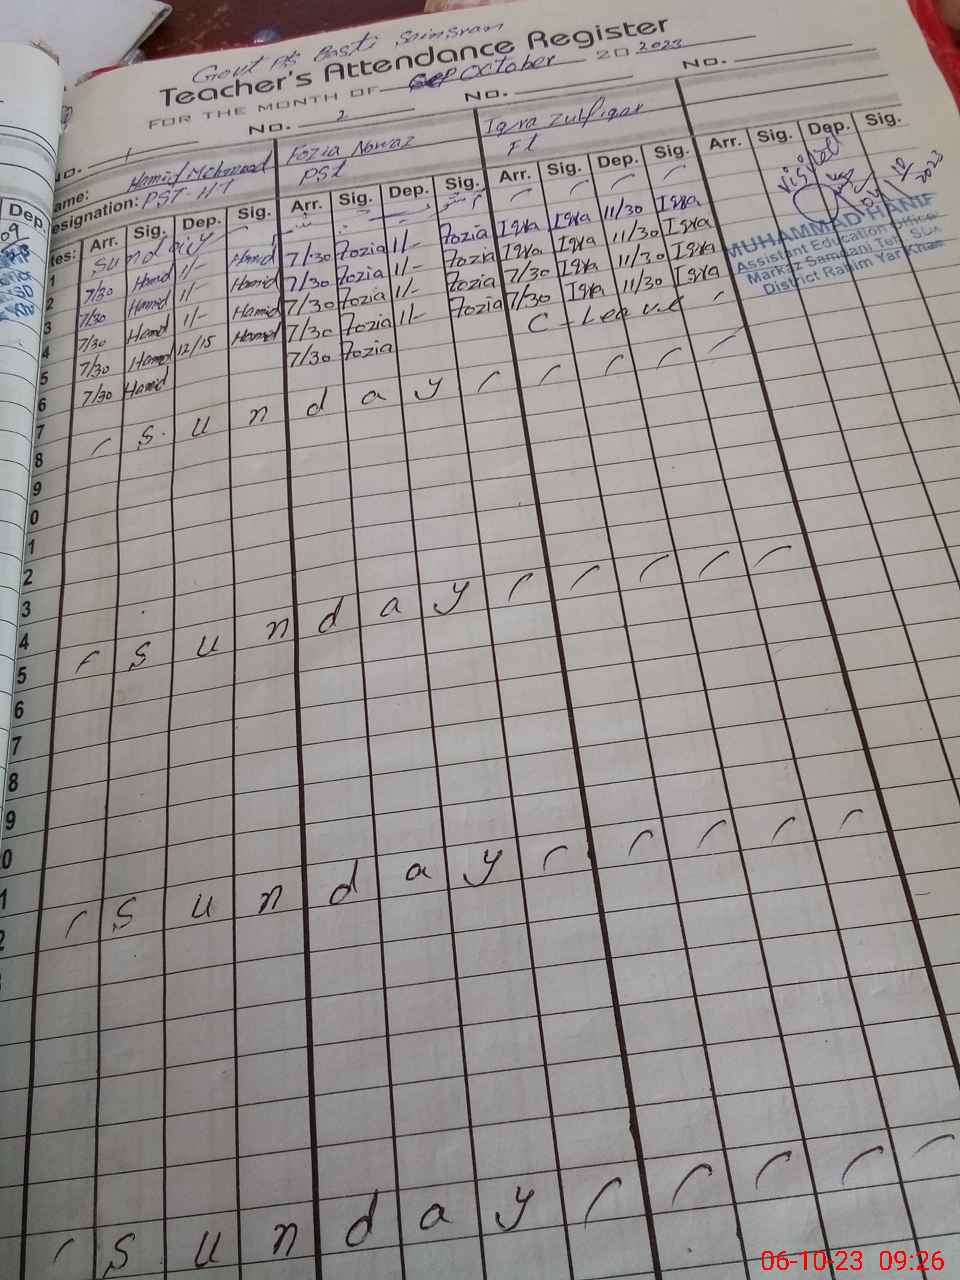 Govt PS Basti
Teacher's Attendance Register
FOR THE MONTH OF October 20 2023
NO. 1 NO. 2 NO. NO.
Name: Hamid Mehmood Fozia Nawaz Iqra Zulfiqar
Designation: PST-HT PST
Dates: Arr. Sig. Dep. Sig. Arr. Sig. Dep. Sig. Arr. Sig. Dep. Sig. Arr. Sig. Dep. Sig.
1 Sunday
2 7/30 Hamid 1/- Hamid 7/30 Fozia 1/- Fozia Iqra Iqra 11/30 Iqra
3 7/30 Hamid 1/- Hamid 7/30 Fozia 1/- Fozia Iqra Iqra 11/30 Iqra
4 7/30 Hamid 1/- Hamid 7/30 Fozia 1/- Fozia 7/30 Iqra 11/30 Iqra
5 7/30 Hamid 12/15 Hamid 7/30 Fozia 1/- Fozia 7/30 Iqra 11/30 Iqra
6 7/30 Hamid 7/30 Fozia C - Leave
7
8 Sunday
9
0
1
2
3
4
5 Sunday
6
7
8
9
0
1
2 Sunday
Sunday
Visited
04/10/2023
MUHAMMAD HANIF
Assistant Education Officer
Markaz Samdani Teh. SDK
District Rahim Yar Khan
Dep.
09
06-10-23 09:26